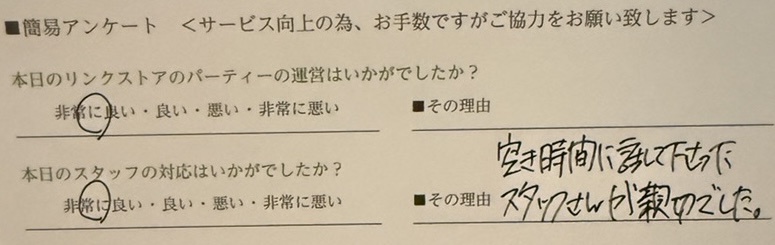 ■簡易アンケート ＜サービス向上の為、お手数ですがご協力をお願い致します＞
本日のリンクストアのパーティーの運営はいかがでしたか？
非常に良い・良い・悪い・非常に悪い ■その理由
本日のスタッフの対応はいかがでしたか？
空き時間に話して下さった
非常に良い・良い・悪い・非常に悪い ■その理由 スタッフさんが親切でした。